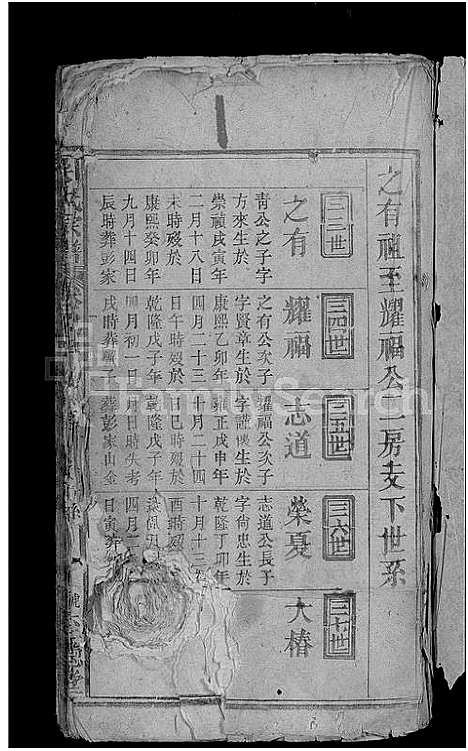 之有祖至耀福公二房支下世系
三三世
之有
青公之子字
方來生於
崇禎戌寅年
二月十八日
未時歿於
康熙癸卯年
九月十四日
辰時葬彭家
三四世
耀福
之有公次子
字賢章生於
康熙乙卯年
四月二十三
日午時歿於
乾隆戊子年
四月初一日
戌時葬
三五世
志道
耀福公次子
字謹僕生於
雍正戊申年
十月二十四
日巳時歿於
乾隆戊子年
月日時失考
葬彭家山金
三六世
榮夏
志道公長子
字尙忠生於
乾隆丁卯年
十月十三
酉時
四月二
日寅
三七世
大椿